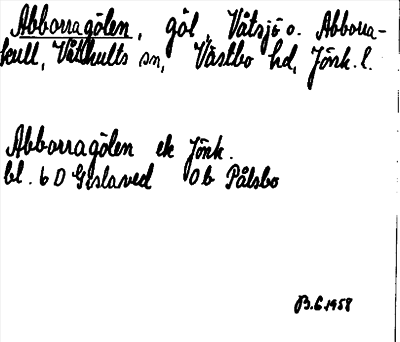 Abborragölen, göl, Våtsjö o. Abborra-
kull, Våthults sn, Västbo hd, Jönk. l.
Abborragölen ek Jönk.
bl. 6 D Gislaved 0b Pålsbo
B.G. 1958